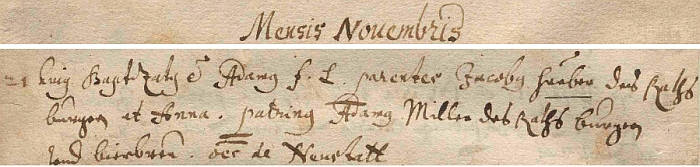 Mensis Nouembris
21 huig Baptizatg e͞ Adamg f. L. parentes Jacobg Hueber des Raths
burgen et Anna. patring Adamg Miller des Raths burgen
vnd bierbreu. oēs de Neustatt